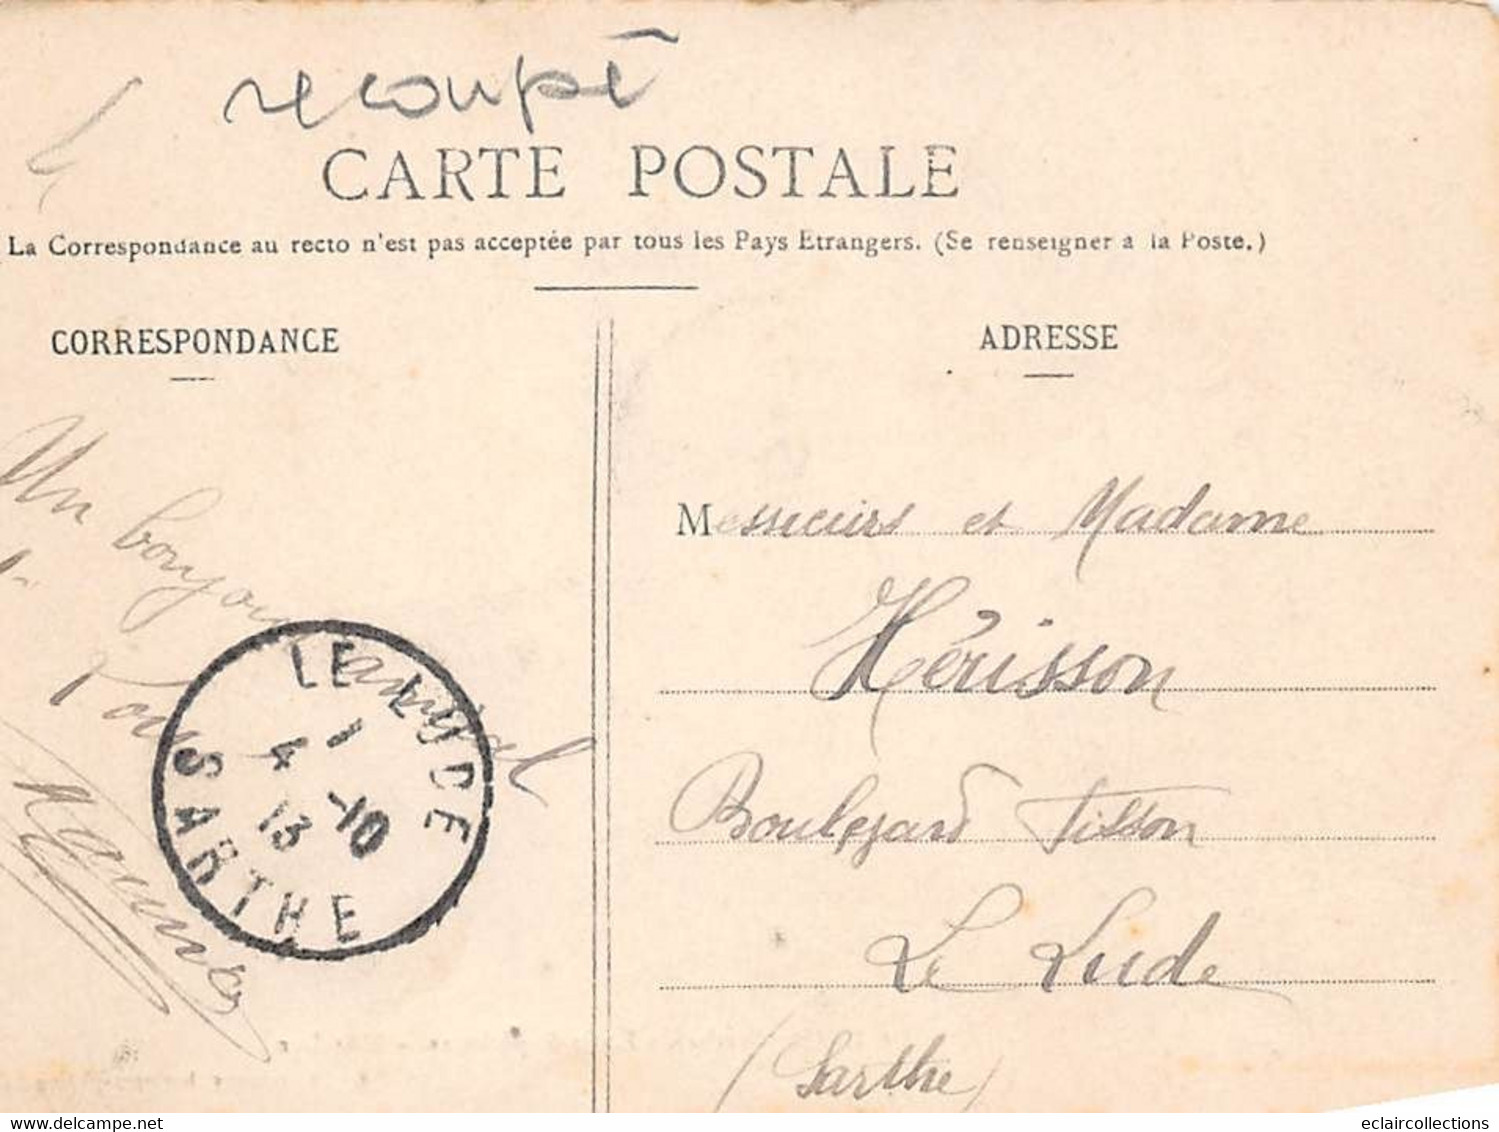 recoupé
CARTE POSTALE
La Correspondance au recto n'est pas acceptée par tous les Pays Etrangers. (Se renseigner a la Poste.)
CORRESPONDANCE
ADRESSE
Un bonjour amical
Messieurs et Madame
Hérisson
Boulevard Tisson
Le Lude
(Sarthe)
LE LUDE
1
4 -10
13
SARTHE
eclaircollections
www.delcampe.net